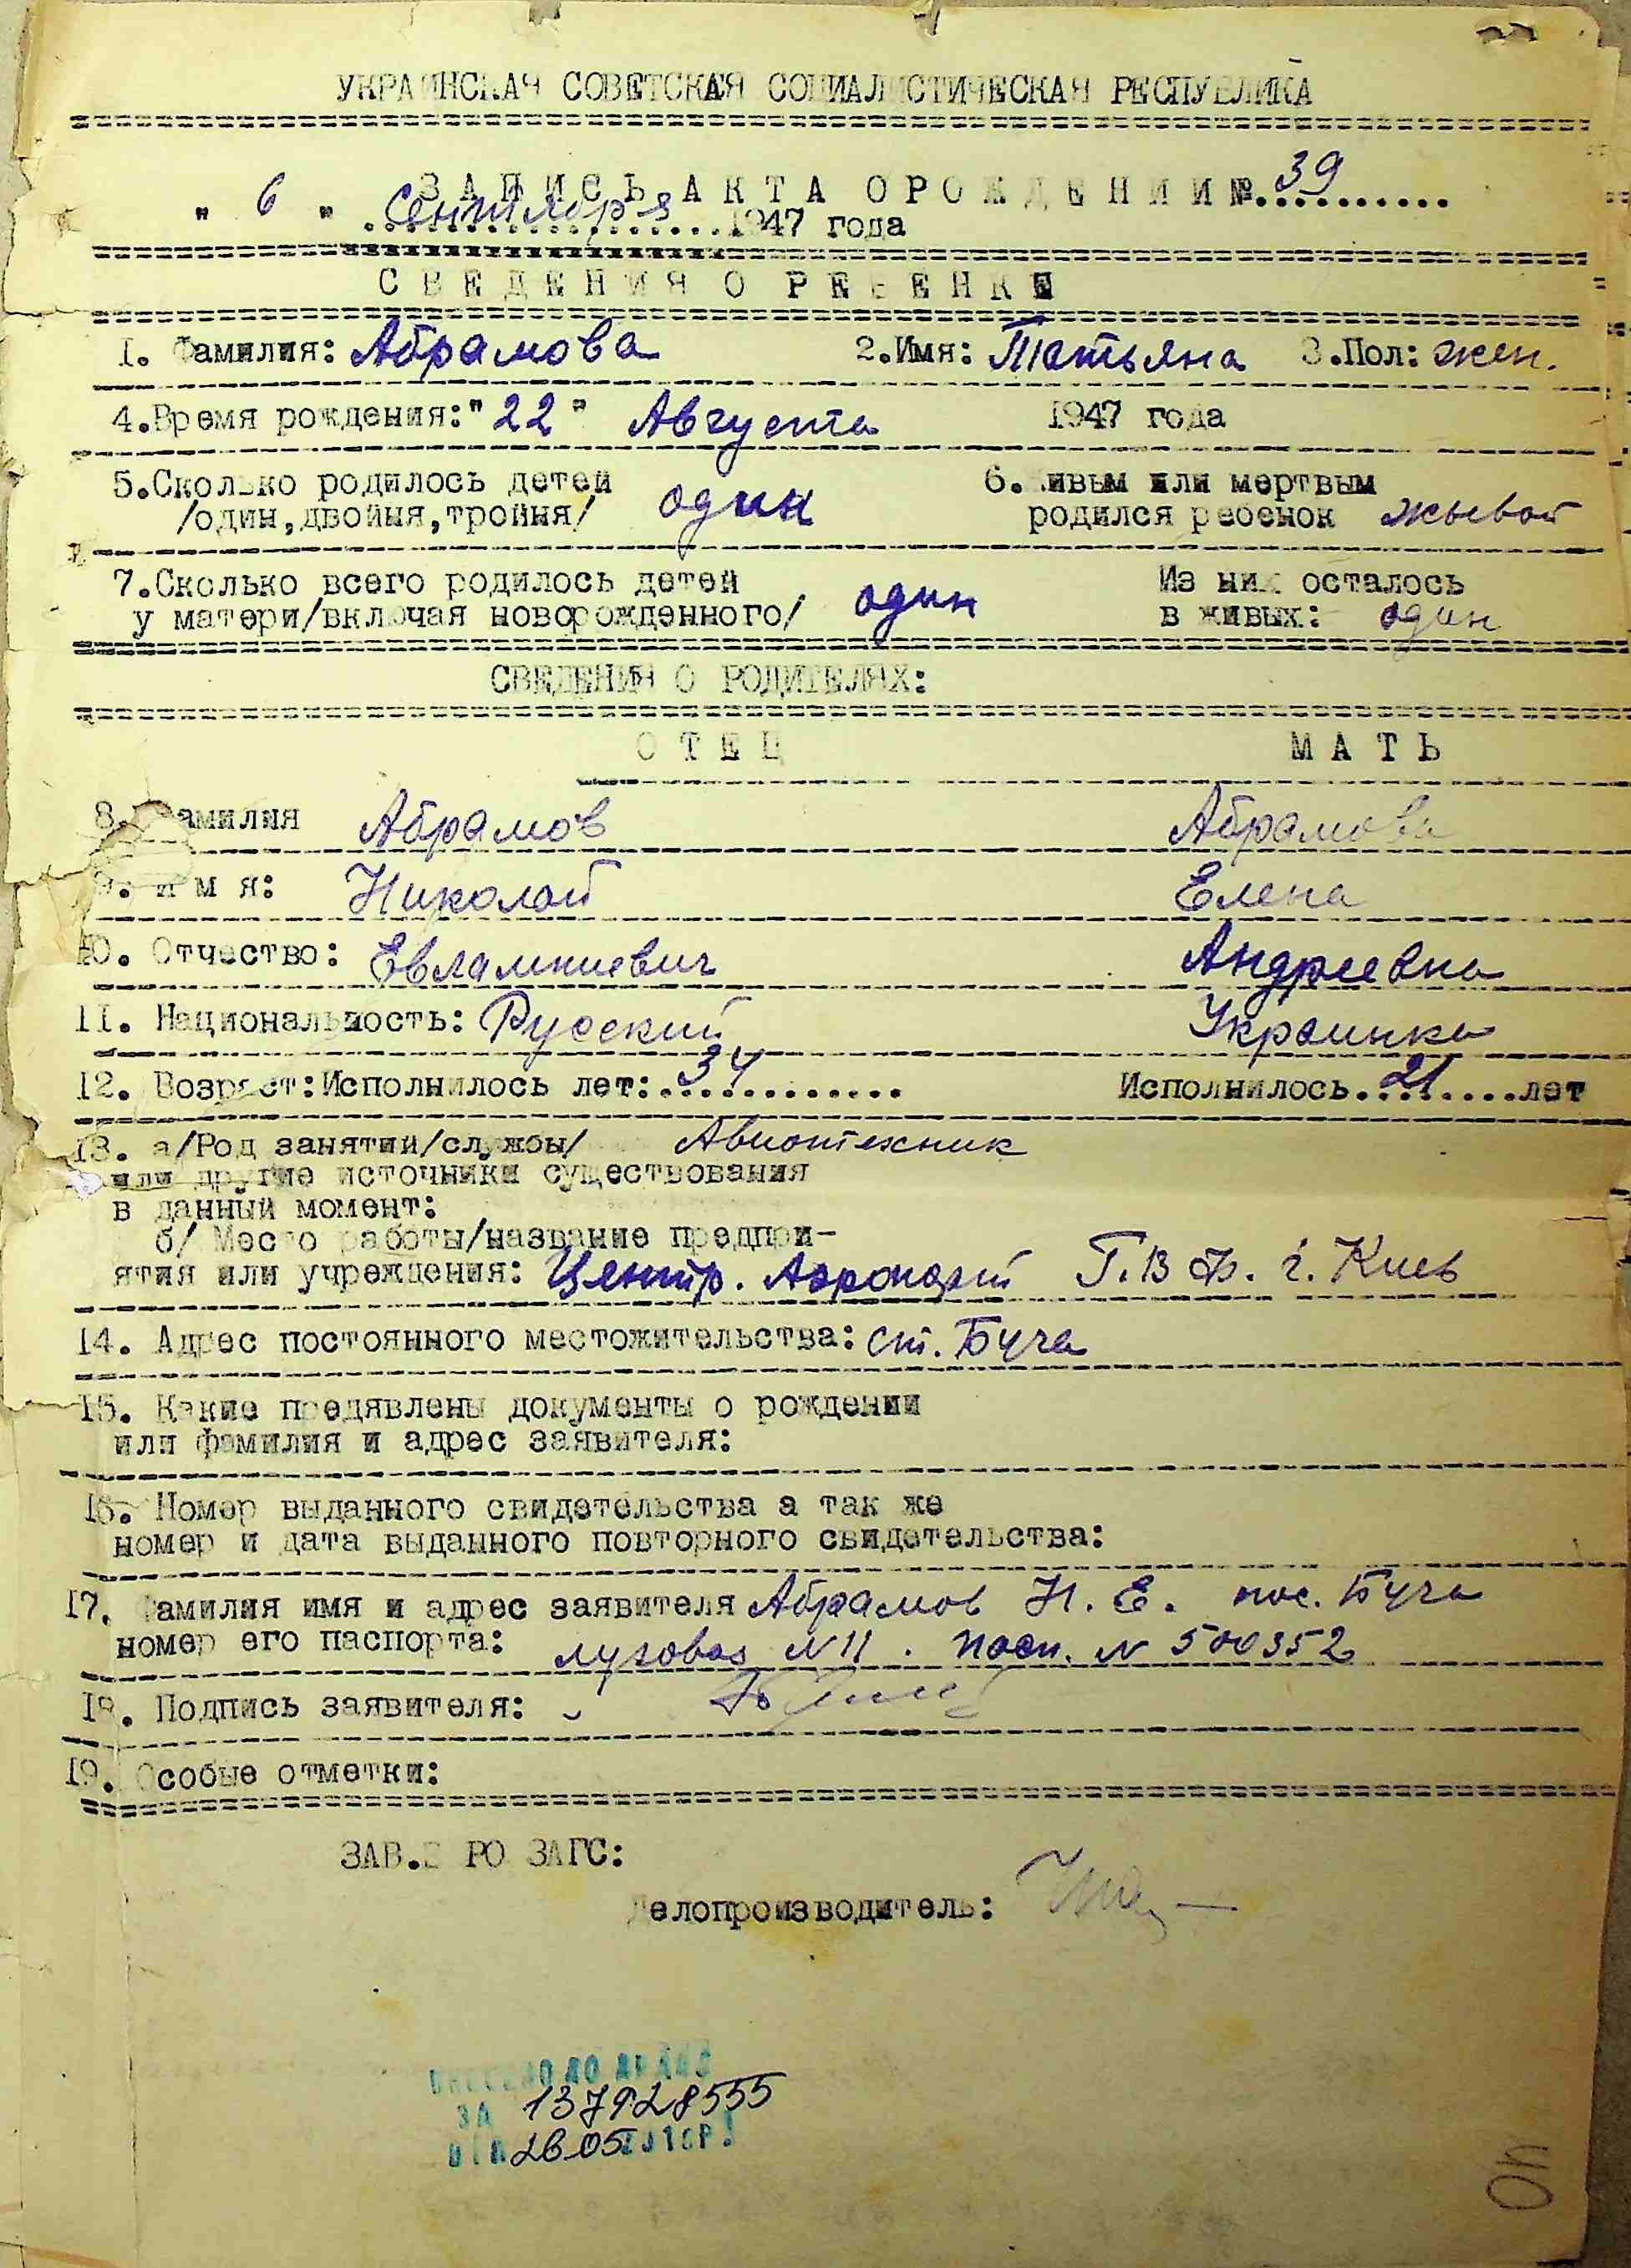 УКРАИНСКАЯ СОВЕТСКАЯ СОЦИАЛИСТИЧЕСКАЯ РЕСПУБЛИКА
ЗАПИСЬ АКТА О РОЖДЕНИИ № 39
" 6 " Сентября 1947 года
СВЕДЕНИЯ О РЕБЕНКЕ
1. Фамилия: Абрамова 2.Имя: Татьяна 3.Пол: жен.
4.Время рождения: "22" Августа 1947 года
5.Сколько родилось детей 6. Живым или мертвым
/один,двойня,тройня/ один родился ребенок жывой
7.Сколько всего родилось детей Из них осталось
у матери/включая новорожденного/ один в живых: один
СВЕДЕНИЯ О РОДИТЕЛЯХ:
ОТЕЦ МАТЬ
8. Фамилия Абрамов Абрамова
9. И м я: Николай Елена
10. Отчество: Евлампиевич Андреевна
11. Национальность: Русский Украинка
12. Возраст: Исполнилось лет: 34 Исполнилось 21 лет
13. а/Род занятий/службы/ Авиотехник
или другие источники существования
в данный момент:
б/ Место работы/название предпри-
ятия или учреждения: Центр. Аэропорт Г.В.Ф. г. Киев
14. Адрес постоянного местожительства: ст. Буча
15. Какие предявлены документы о рождении
или фамилия и адрес заявителя:
16. Номер выданного свидетельства а так же
номер и дата выданного повторного свидетельства:
17. Фамилия имя и адрес заявителя Абрамов Н. Е. пос. Буча
номер его паспорта: луговая N 11. пасп. N 500352
18. Подпись заявителя:
19. Особые отметки:
ЗАВ. РО ЗАГС:
Делопроизводитель:
ВНЕСЕНО ДО ДРАЦС
ЗА 137928555
ВІД 26.05 201 Р.
40